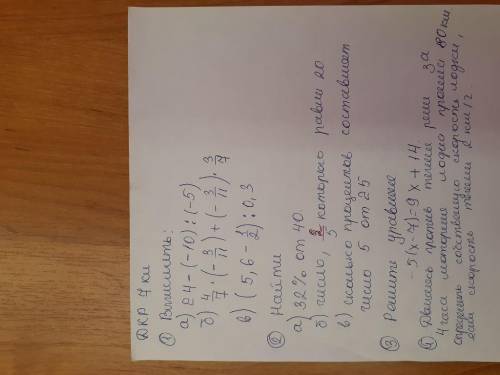 ДКР 7 кл
① Вычислить:
а) 24 - (-10) : (-5)
б) 4/7 · (- 3/11) + (- 3/11) · 3/7
в) (5,6 - 1/2) : 0,3
② Найти
а) 32% от 40
б) число, которого равны 20
в) сколько процентов составляет
число 5 от 25
③ Решите уравнение
-5(x-7)=9x+14
④ Двигаясь против течения реки за
4 часа моторная лодка прошла 80 км
определить собственную скорость лодки,
если скорость течения 2 км/ч